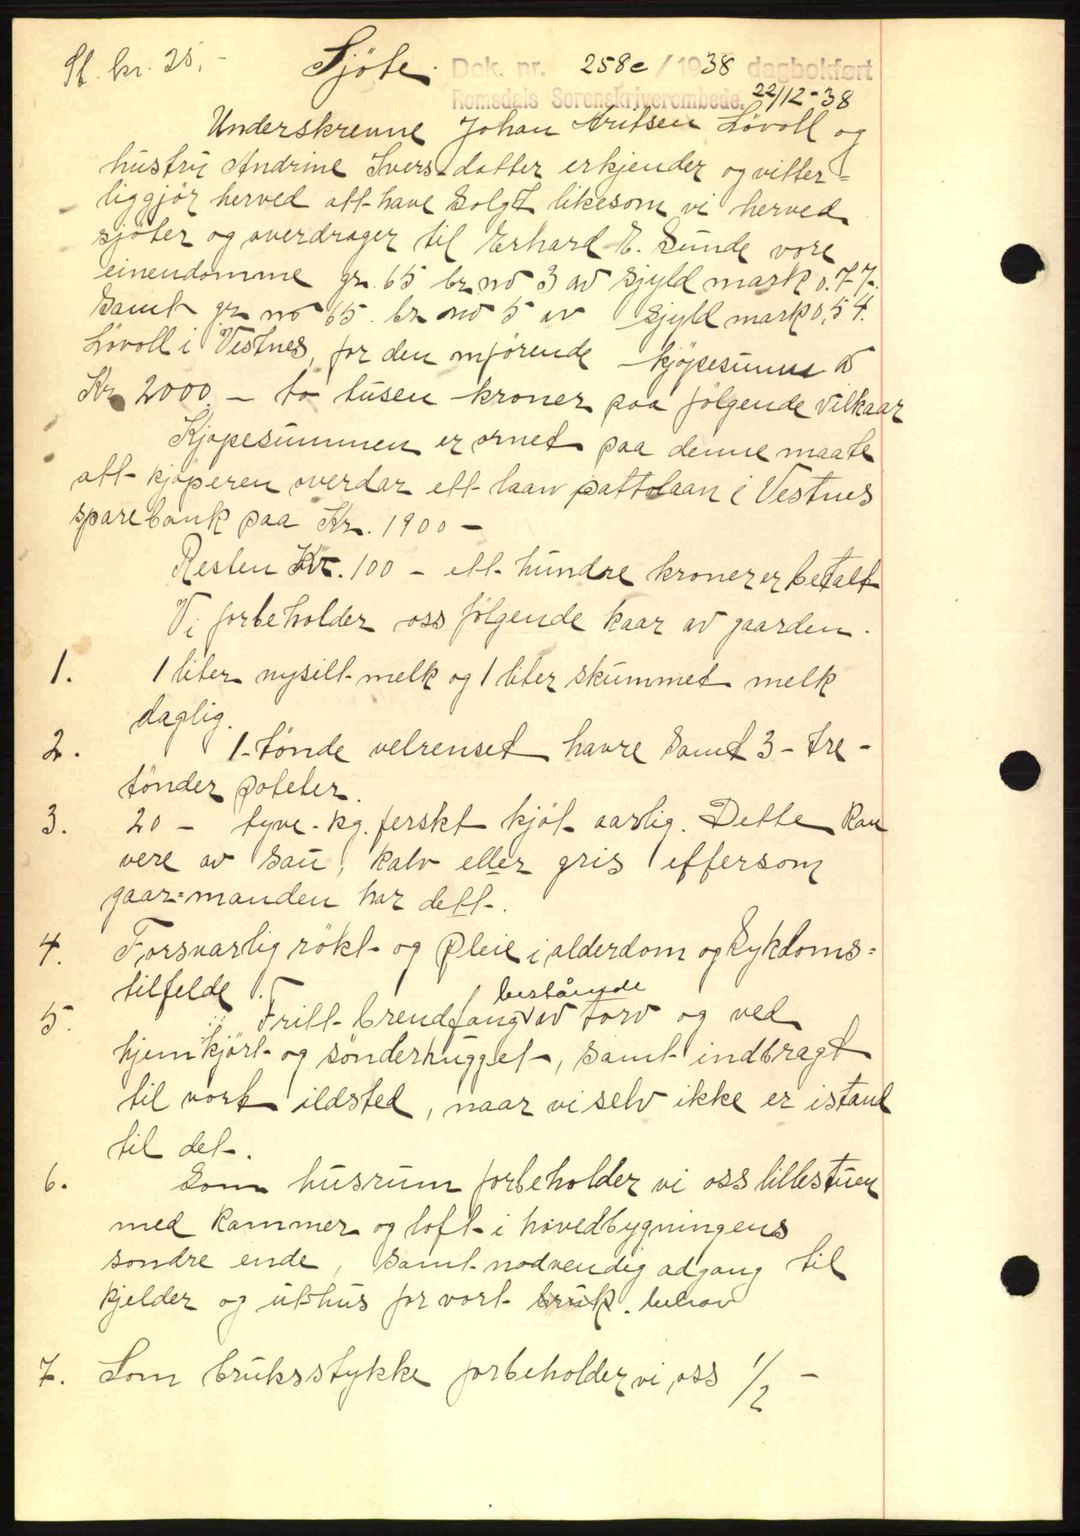 St. kr. 25,-
Sjöte.
Dok. nr. 2582/1938 dagbokført
Romsdals Sorenskriverembede. 22/12-38
Underskrenne Johan Aritsen Lövoll og
hustru Andrine Iversdatter erkjender og vitter=
liggjör herved att have Solgt likesom vi herved
sjöter og overdrager til Erhard E. Sunde vore
einendomme gr. 65 br no 3 av Sjyld mark 0.77.
Samt gr no 65 br no 5 av Sjyld mark 0,54.
Lövoll i Vestnes, for den omförende kjöpesumme av
Kr 2000. - to tusen kroner paa følgende vilkaar
Kjøpesummen er ornet paa denne maate
att kjöperen overdar ett laan pattolaan i Vestnes
sparebank paa Kr. 1900 -
Resten Kr. 100 - ett hundre kroner er betalt
Vi forbeholder oss følgende kaar av gaarden.
1. 1 liter nysilt melk og 1 liter skummet melk
daglig.
2. 1 tönde velrenset havre Samt 3 - tre -
tönder poteter.
3. 20 - tyve - kg. ferskt kjöt aarlig. Dette kan
vere av Sau, kalv eller gris effersom
gaar=manden har dett.
4. Forsvarlig rökt og pleie i alderdom og Sykdoms=
tilfelde.
5. Fritt brendfang bestående av torv og ved
hjemkjört og sönderhugget, Samt indbragt
til vort ildsted, naar vi selv ikke er istand
til det.
6. Som husrum forbeholder vi oss lillestuen
med kammer og loft i hovedbygningens
sondre ende, Samt nodvendig adgang til
kjelder og uthus for vort bruk. behov
7. Som bruksstykke forbeholder vi oss 1/2 -